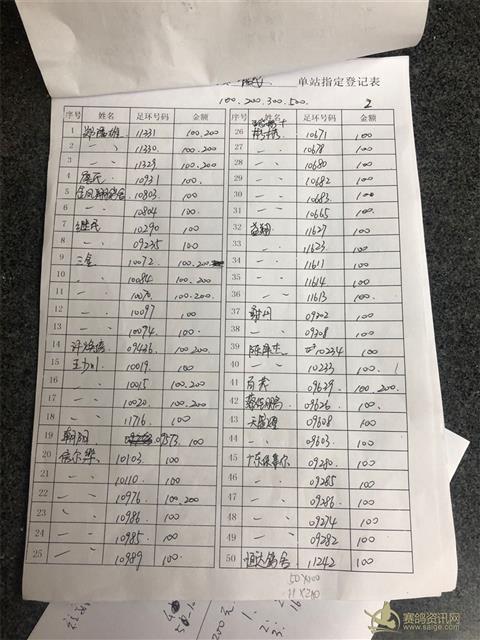 单站指定登记表
100.200.300.500. 2
序号 姓名 足环号码 金额 序号 姓名 足环号码 金额
1 11331 100.200 26 10671 100
2 〃 11330. 100.200 27 〃 10678 100
3 〃 11329 100.200 28 〃 10680 100
4 10931 100. 29 〃 10682 100
5 10803 100. 30 〃 10683 100
6 〃 10804 100. 31 〃 10665 100
7 继民 10290 100 32 益翔 11627 100
8 〃 09235 100 33 〃 11623 100
9 三金 10072 100.200 34 〃 11611 100
10 〃 10084 100.200 35 〃 11614 100
11 〃 10070 100.200 36 〃 11613 100
12 〃 10097 100 37 09302 100
13 〃 10074 100. 38 〃 09308 100
14 09436 100.200 39 10234 100
15 10019 100. 40 〃 10233 100.
16 〃 10015 100.200 41 09639 100 200
17 〃 10020 100.200 42 09626 100
18 〃 11716 100 43 09608 100
19 翱翔 09573 100 44 〃 09603 100
20 10103 100 45 09280 100
21 〃 10110 100 46 〃 09285 100
22 〃 10976 100.200 47 〃 09286 100
23 〃 10986 100 48 〃 09274 100
24 〃 10985 100 49 〃 09282 100
25 〃 10989 100 50 11242 100
50×100
11×200
赛鸽资讯网
www.saige.com